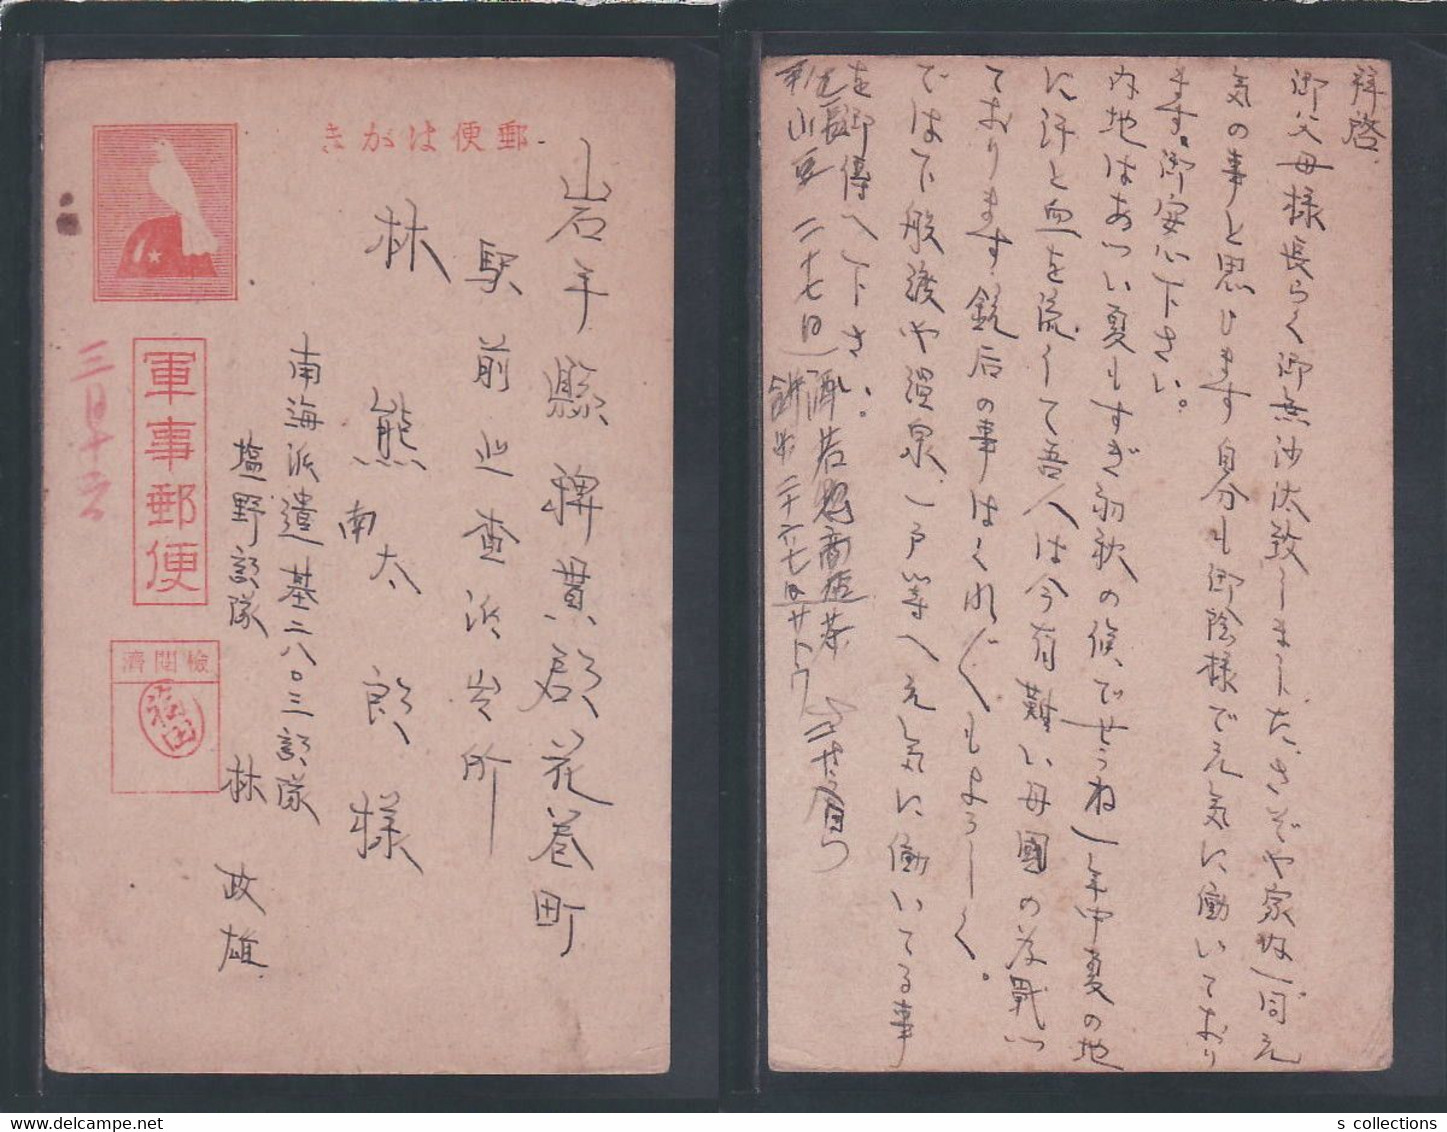 郵便はがき
軍事郵便
檢閲濟
福田
三月十五
岩手縣稗貫郡花巻町
駅前巡査派出所
林熊太郎様
南
南海派遣基二八〇三部隊
塩野部隊
林政雄
拝啓
御父母様長らく御無沙汰致しました、さぞや家内一同元
気の事と思ひます自分も御陰様で元気に働いており
ます。御安心下さい。
内地はあつい夏もすぎ初秋の候、でせうね一年中夏の地
に汗と血を流して吾人は今有難い母國の為戰つ
ております 銃后の事はくれぐれもよろしく。
では下般渡や温泉、一戸等へ元気に働いてる事
を御傳へ下さい。
二十七日 酒 若 商店 茶
二十六七日 サトウ
s collections